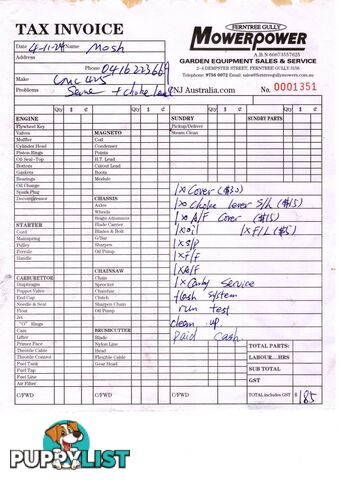 TAX INVOICE
FERNTREE GULLY
MOWERPOWER
A.B.N 60673557625
GARDEN EQUIPMENT SALES & SERVICE
2-4 DEMPSTER STREET, FERNTREE GULLY 3156
Telephone: 9756 0072 Email: sales@ferntreegullymowers.com.au
Date 4-11-24 Name Mosh
Address
Phone 0416223669
Make
Problems Serve + choke
CNJ Australia.com
No. 0001351
Qty $ ¢ Qty $ ¢ Qty $ ¢ Qty $ ¢
ENGINE SUNDRY SUNDRY PARTS
Flywheel Key Pickup/Deliver
Valves MAGNETO Steam Clean
Muffler Coil
Cylinder Head Condenser
Piston Rings Points
Oil Seal-Top H.T. Lead
Bottom Cutout Lead
Gaskets Boots
Bearings Module
Oil Change
Spark Plug 1x Cover ($30)
Decompressor CHASSIS 1x choke lever S/h ($15)
Axles
Wheels 1x A/F Cover ($15)
Height Adjustment
STARTER Blade Carrier 1x oil 1x F/L ($5)
Cord Blades & Bolt
Mainspring G/Bar 1x S/P
Pulley Sprocket
Freewle Oil Pump 1x F/F
CHAINSAW 1x A/F
CARBURETTOR Chain
Diaphragm Sprocket 1x Carby Service
Poppet Valve Chainbar
End Cap Clutch flosh system
Needle & Seat Sharpen Chain
Float Oil Pump run test
Jet
"O" Rings clean up.
Cam BRUSHCUTTER
Lifter Blade Paid Cash.
Primer Face Nylon Line
Throttle Cable Head TOTAL PARTS:
Throttle Control Flexible Cable LABOUR....HRS
Fuel Tank Gear Head
Fuel Tap SUB TOTAL
Fuel Line
Air Filter GST
C/FWD C/FWD C/FWD TOTAL includes GST $ 185
PUPPYLIST